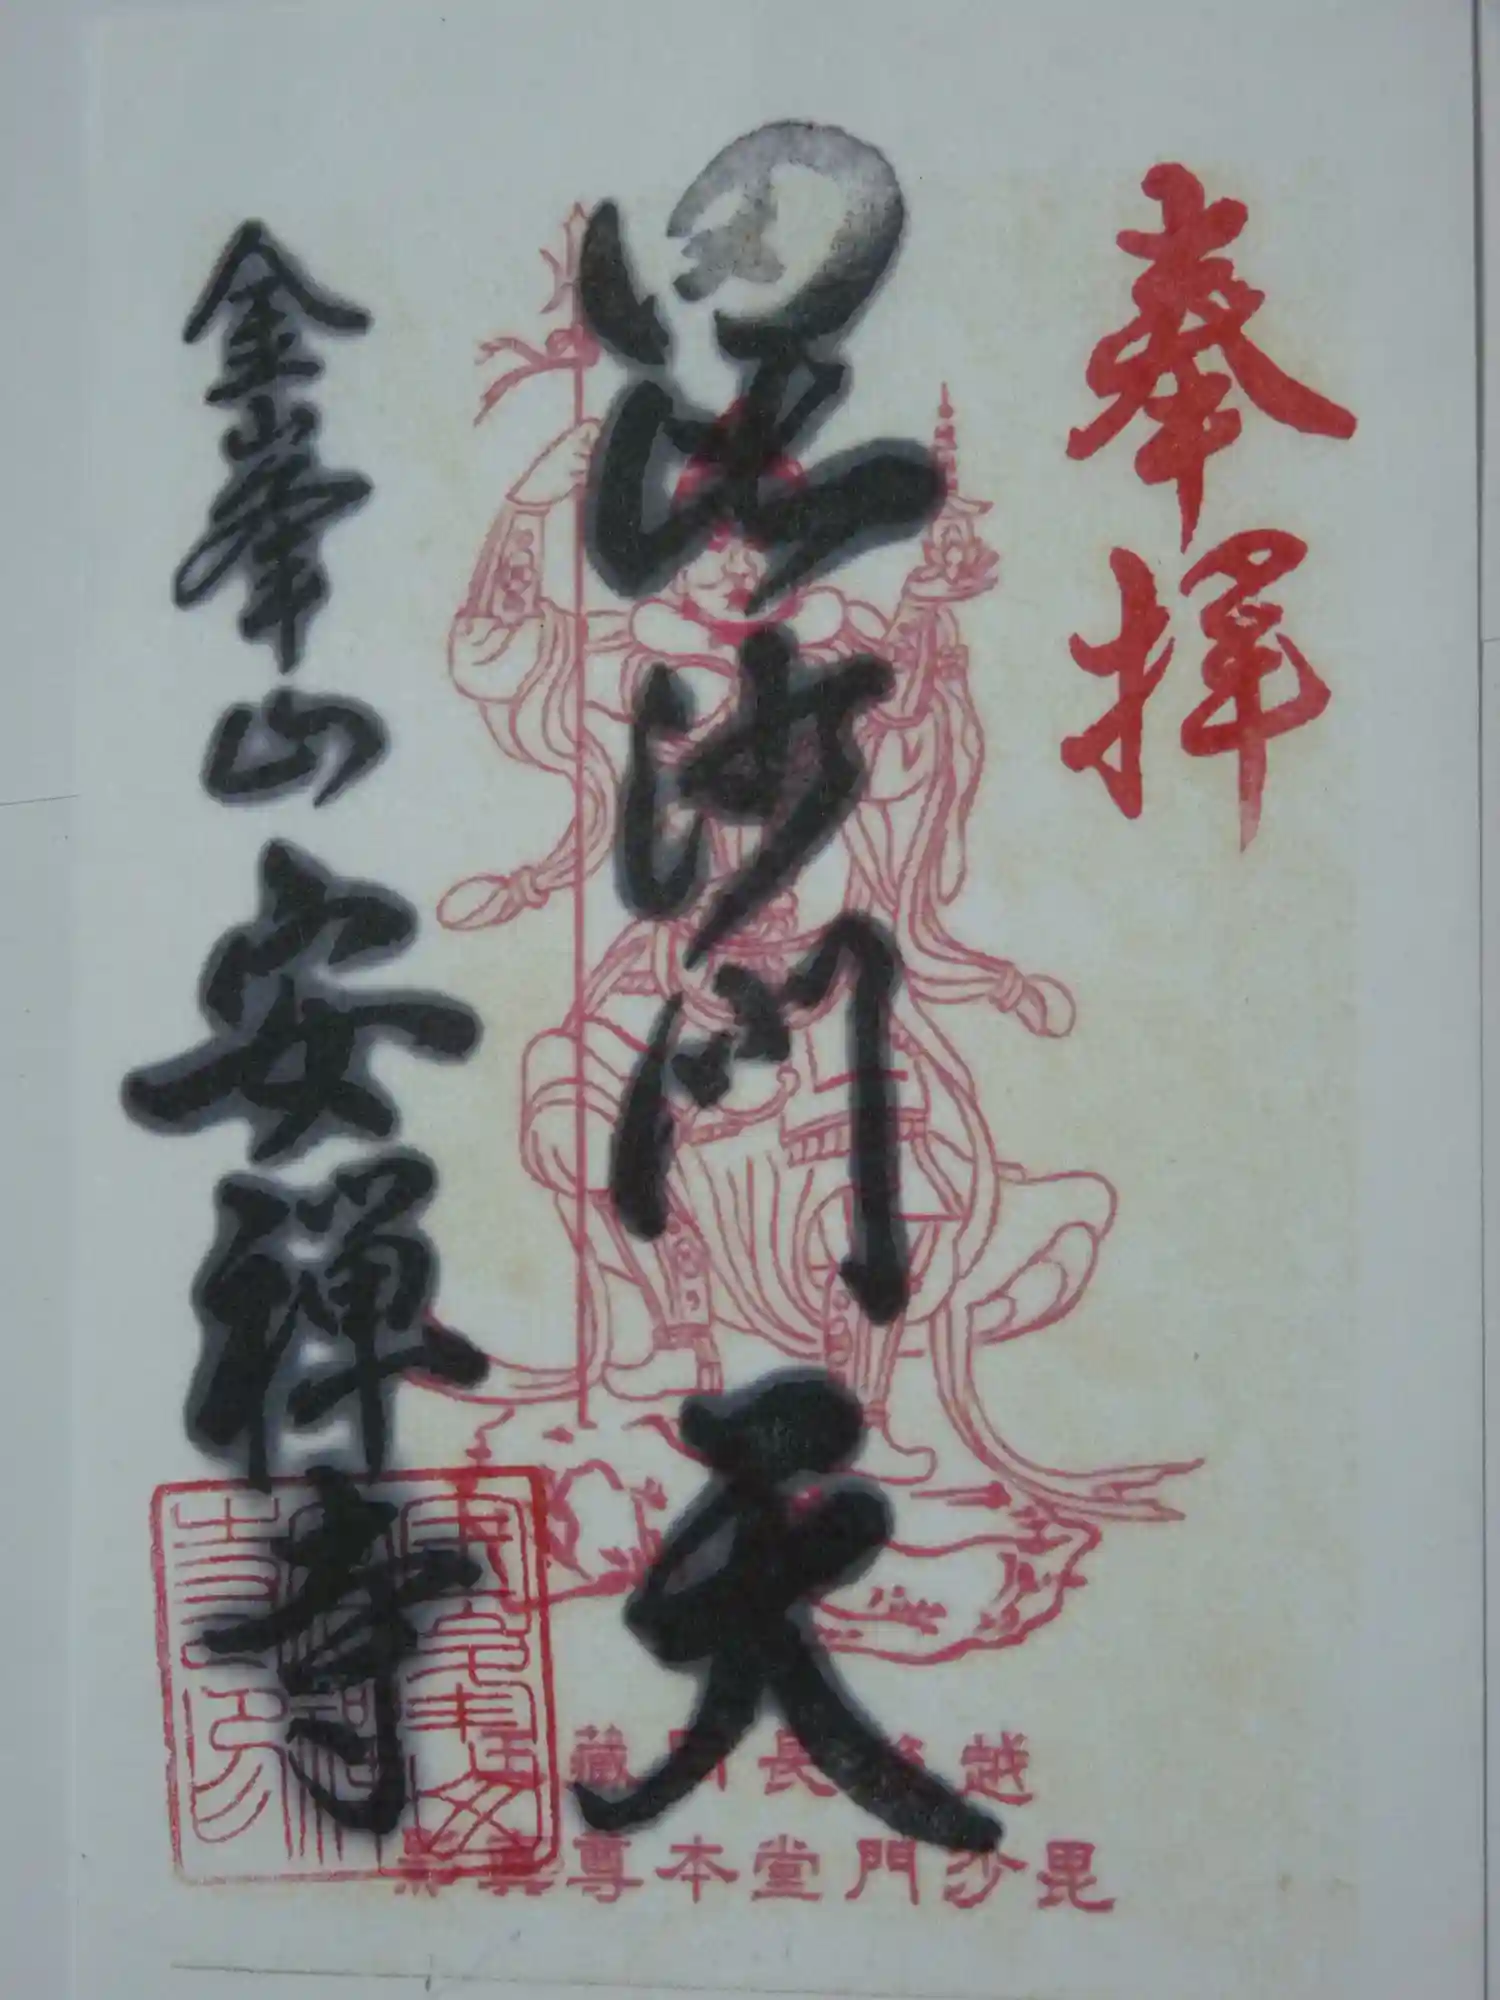 奉拝
毘沙門天
金峯山 安禅寺
越後長岡藏王
毘沙門堂本尊真像